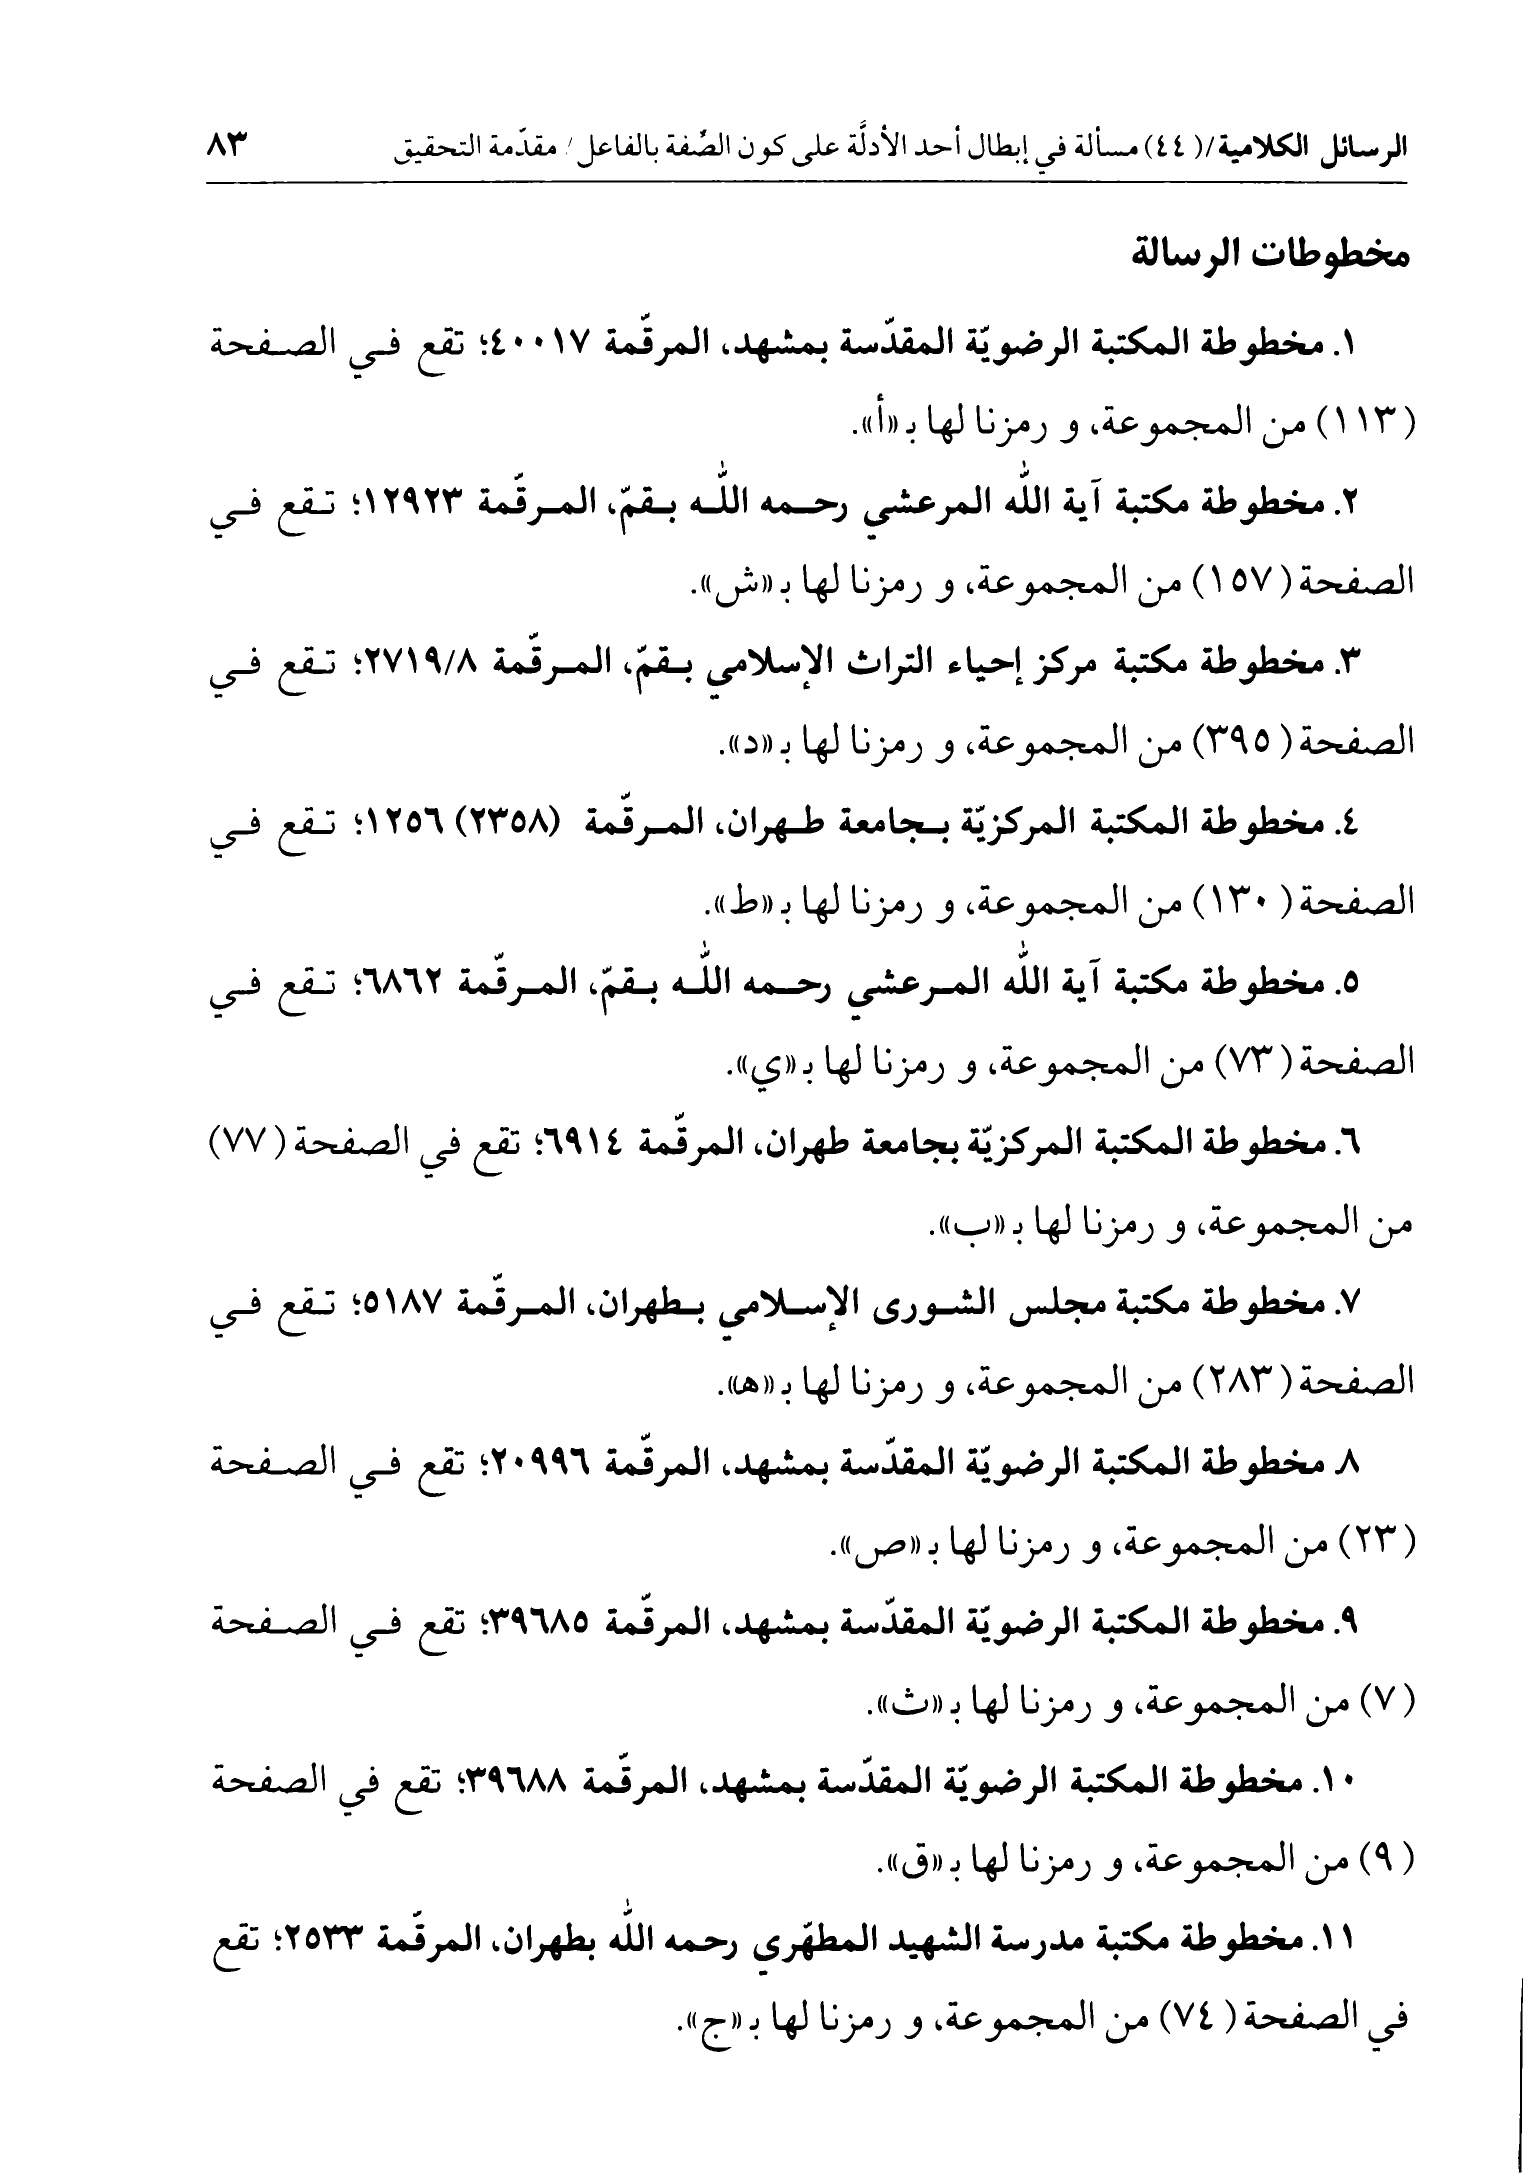 الرسائل الكلامية/(٤٤) مسألة في إبطال أحد الأدلَّة على كون الصِّفة بالفاعل / مقدّمة التحقيق ٨٣
مخطوطات الرسالة
١. مخطوطة المكتبة الرضويّة المقدّسة بمشهد، المرقّمة ٤٠٠١٧؛ تقع في الصفحة
(١١٣) من المجموعة، و رمزنا لها بـ «أ».
٢. مخطوطة مكتبة آية اللّه المرعشي رحمه اللّه بقمّ، المرقّمة ١٢٩٢٣؛ تقع في
الصفحة (١٥٧) من المجموعة، و رمزنا لها بـ «ش».
٣. مخطوطة مكتبة مركز إحياء التراث الإسلامي بقمّ، المرقّمة ٢٧١٩/٨؛ تقع في
الصفحة (٣٩٥) من المجموعة، و رمزنا لها بـ «د».
٤. مخطوطة المكتبة المركزيّة بجامعة طهران، المرقّمة (٢٣٥٨) ١٢٥٦؛ تقع في
الصفحة (١٣٠) من المجموعة، و رمزنا لها بـ «ط».
٥. مخطوطة مكتبة آية اللّه المرعشي رحمه اللّه بقمّ، المرقّمة ٦٨٦٢؛ تقع في
الصفحة (٧٣) من المجموعة، و رمزنا لها بـ «ي».
٦. مخطوطة المكتبة المركزيّة بجامعة طهران، المرقّمة ٦٩١٤؛ تقع في الصفحة (٧٧)
من المجموعة، و رمزنا لها بـ «ب».
٧. مخطوطة مكتبة مجلس الشورى الإسلامي بطهران، المرقّمة ٥١٨٧؛ تقع في
الصفحة (٢٨٣) من المجموعة، و رمزنا لها بـ «ه».
٨. مخطوطة المكتبة الرضويّة المقدّسة بمشهد، المرقّمة ٢٠٩٩٦؛ تقع في الصفحة
(٢٣) من المجموعة، و رمزنا لها بـ «ص».
٩. مخطوطة المكتبة الرضويّة المقدّسة بمشهد، المرقّمة ٣٩٦٨٥؛ تقع في الصفحة
(٧) من المجموعة، و رمزنا لها بـ «ث».
١٠. مخطوطة المكتبة الرضويّة المقدّسة بمشهد، المرقّمة ٣٩٦٨٨؛ تقع في الصفحة
(٩) من المجموعة، و رمزنا لها بـ «ق».
١١. مخطوطة مكتبة مدرسة الشهيد المطهّري رحمه اللّه بطهران، المرقّمة ٢٥٣٣؛ تقع
في الصفحة (٧٤) من المجموعة، و رمزنا لها بـ «ج».